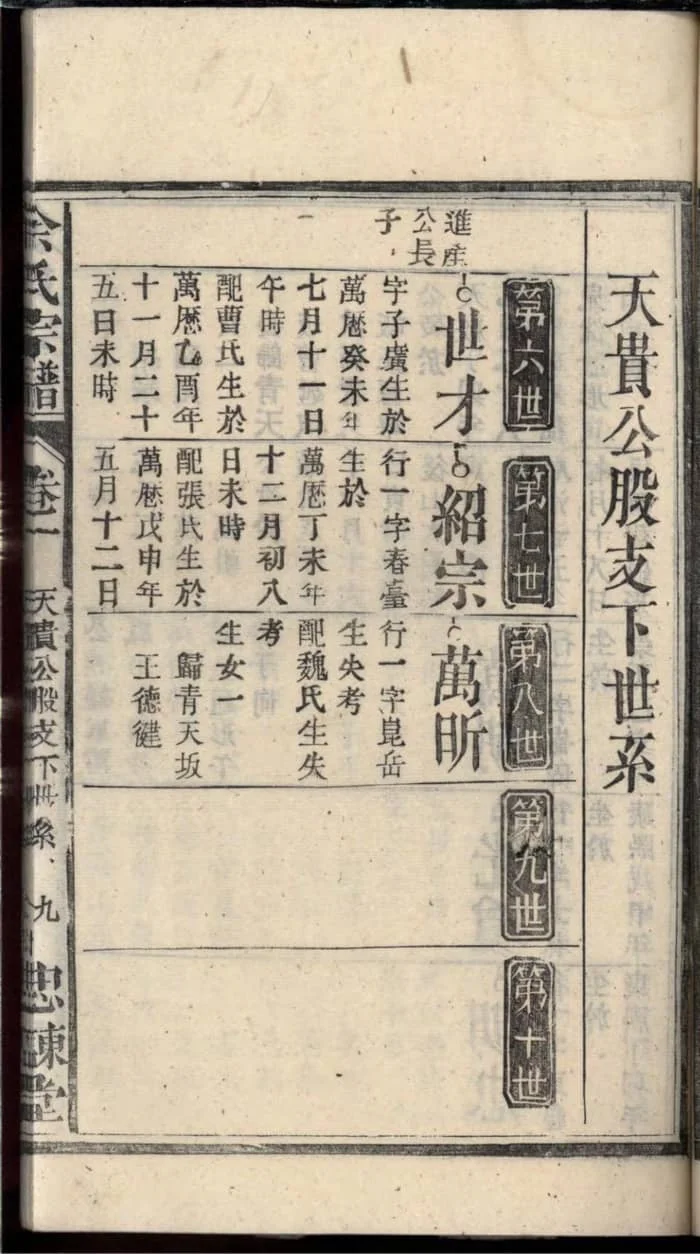 天貴公股支下世系
第六世
第七世
第八世
第九世
第十世
進產
公長
子
世才
字子廣生於
萬曆癸未年
七月十一日
午時
配曹氏生於
萬曆乙酉年
十一月二十
五日未時
紹宗
行一字春臺
生於
萬曆丁未年
十二月初八
日未時
配張氏生於
萬曆戊申年
五月十二日
萬昕
行一字崑岳
生失考
配魏氏生失
考
生女一
歸青天坂
王德徤
余氏宗譜
卷一
天貴公股支下世系
九
忠諫堂